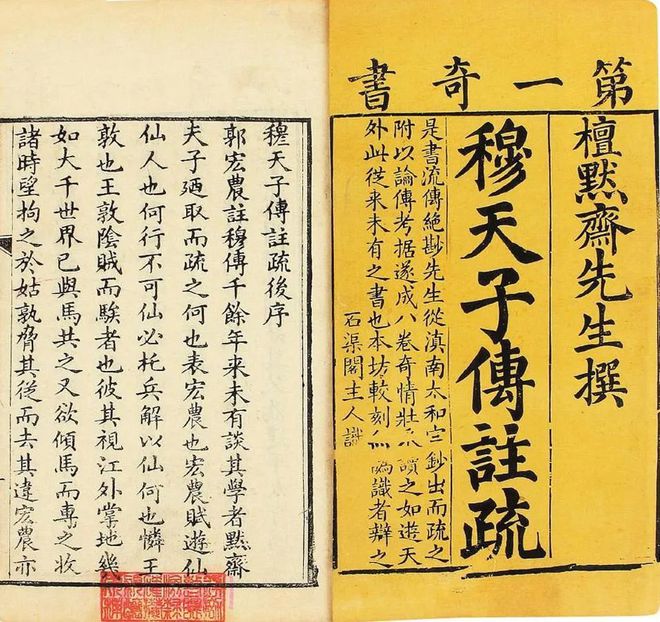 第一奇書
檀黙齋先生撰
穆天子傳註疏
是書流傳絕尠先生從滇南太和官鈔出而疏之
附以論傳考据遂成八卷奇情壯讀之如遊天
外此從来未有之書也本坊較刻偽識者辯之
石渠閣主人識
穆天子傳註疏後序
郭宏農註穆傳千餘年来未有談其學者黙齋
夫子廼取而疏之何也表宏農也宏農賦遊仙
仙人也何行不可仙必托兵解以仙何也憐王
敦也王敦陰賊而騃者也彼其視江外掌地幾
如大千世界已與馬共之又欲傾馬而專之收
諸時望拘之於姑孰脅其從而去其違宏農亦